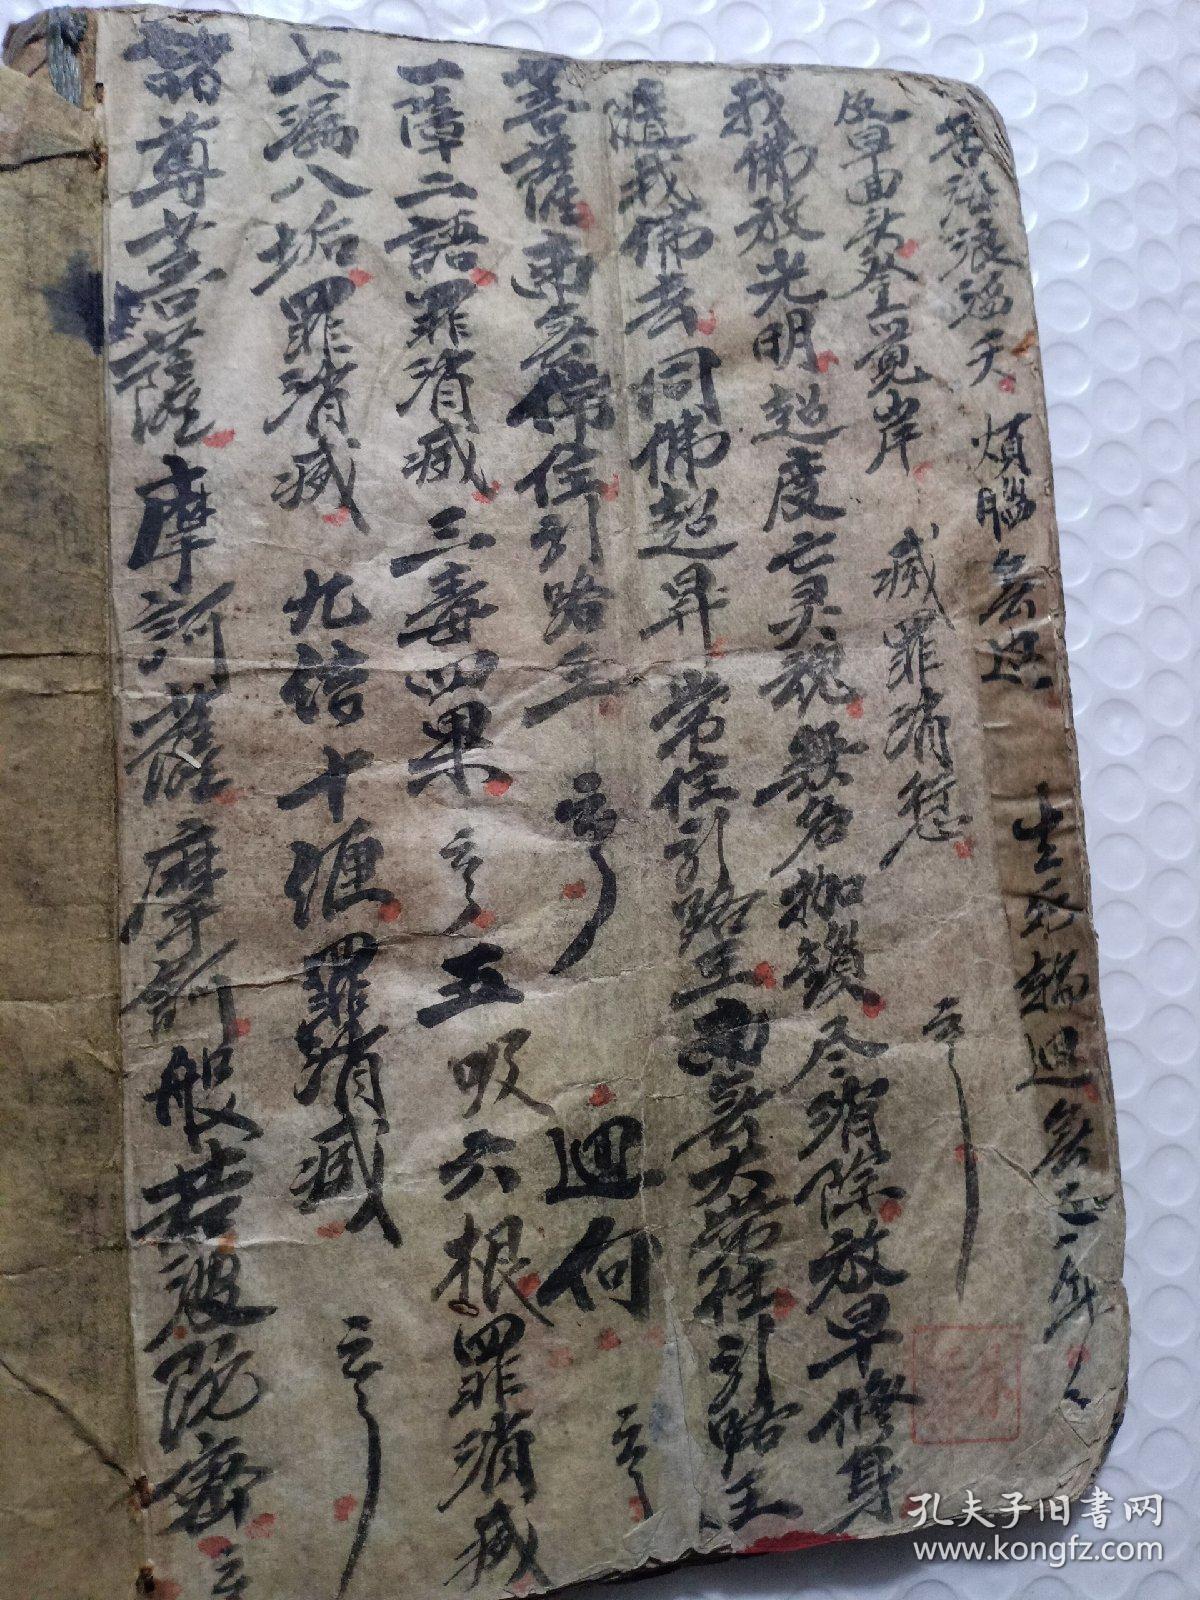 苦海浪滔天 煩腦無邊 生死輪迴無
回头登覚岸 滅罪消愆
我佛放光明超度亡灵魂無名枷鎖尽消除放早修身
隨我佛去同佛超昇常住引路王南無大常住引路王
菩薩南無佛住引路王 迴向
一障二語罪消滅三毒四果 五吸六根罪消滅
七漏八垢罪消滅 九結十纏罪消滅
諸尊菩薩摩訶薩摩訶般若波
孔夫子旧书网
www.kongfz.com